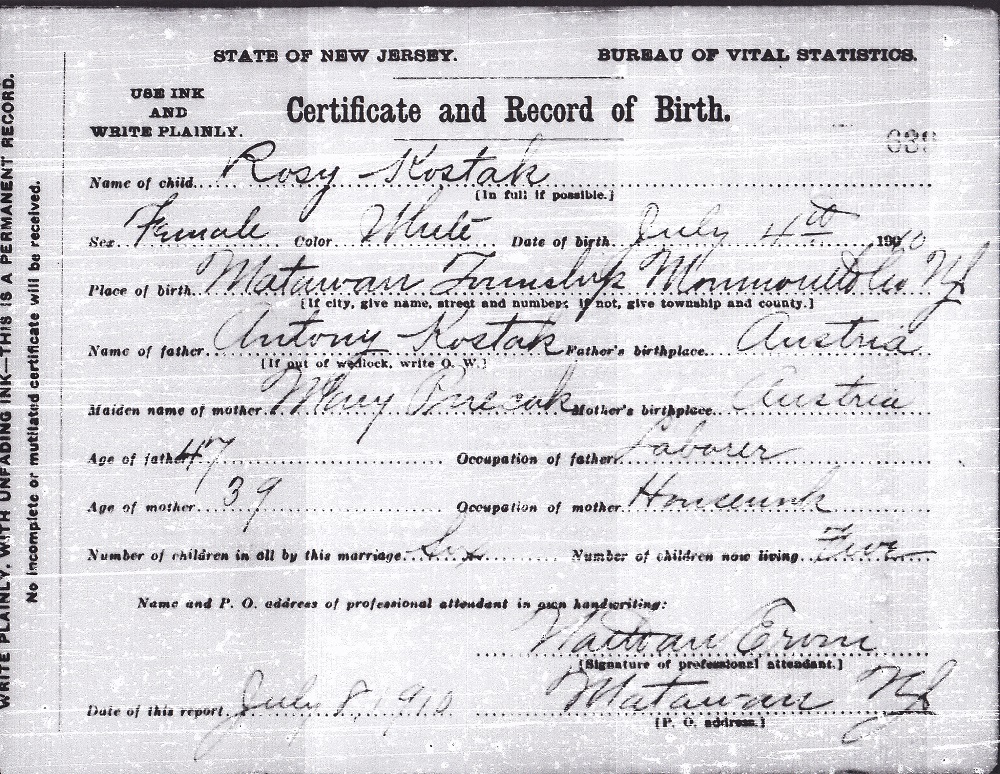 STATE OF NEW JERSEY. BUREAU OF VITAL STATISTICS.
USE INK
AND
WRITE PLAINLY.
Certificate and Record of Birth.
Name of child Rosy Kostak
[In full if possible.]
Sex Female Color White Date of birth July 4th 1910
Place of birth Matawan Township Monmouth Co NJ
[If city, give name, street and number; if not, give township and county.]
Name of father Antony Kostak Father's birthplace Austria
[If out of wedlock, write O. W.]
Maiden name of mother Mary Mother's birthplace Austria
Age of father 47 Occupation of father Laborer
Age of mother 39 Occupation of mother Housework
Number of children in all by this marriage Six Number of children now living Five
Name and P. O. address of professional attendant in own handwriting:
[Signature of professional attendant.]
Date of this report July 8, 1910 Matawan NJ
[P. O. address.]
WRITE PLAINLY, WITH UNFADING INK—THIS IS A PERMANENT RECORD.
No incomplete or mutilated certificate will be received.